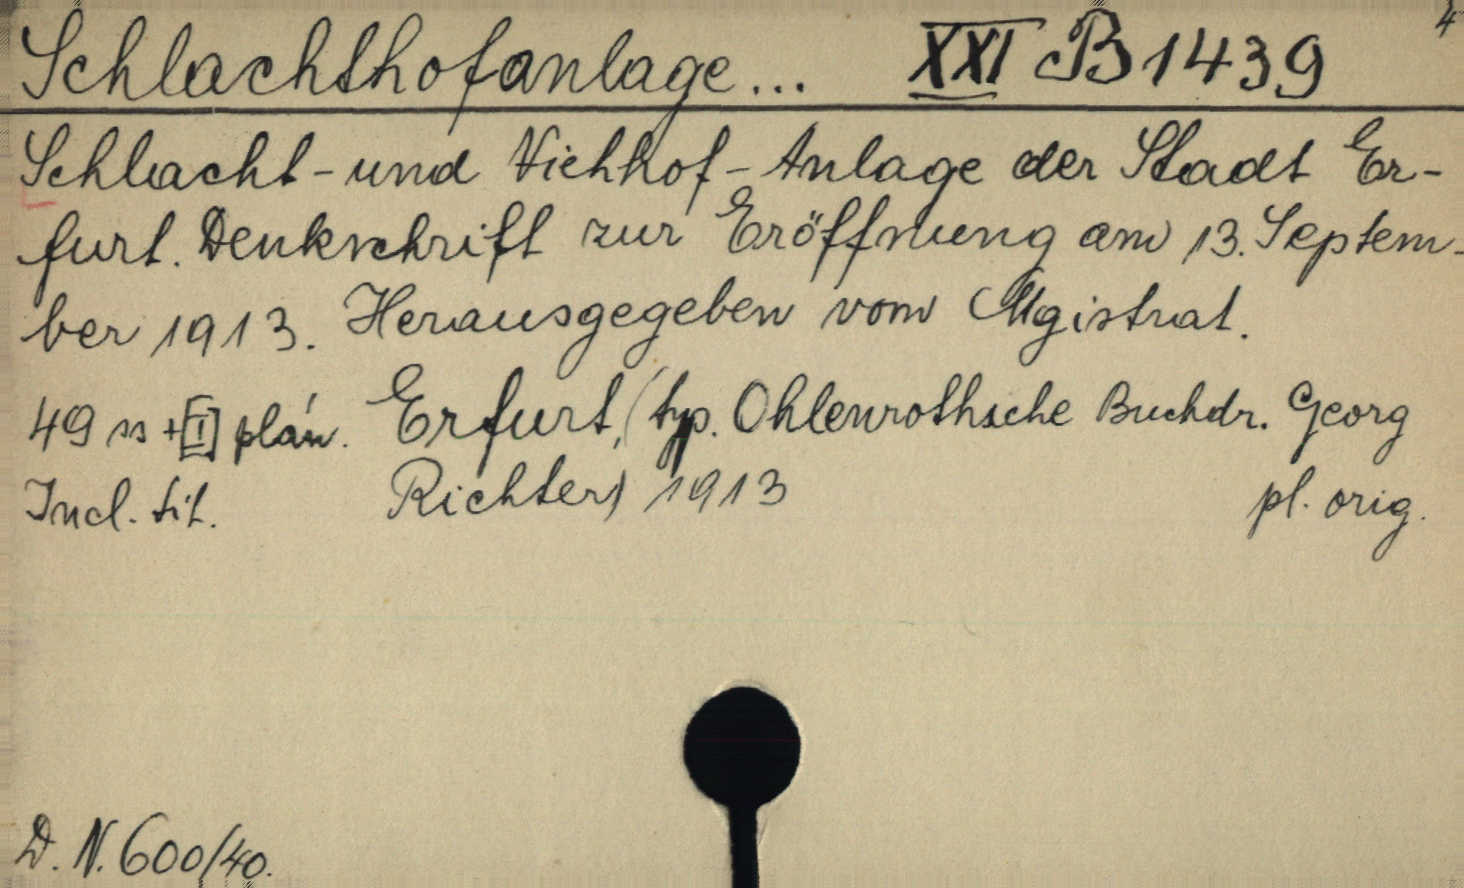 Schlachthofanlage... XXI B 1439 4
Schlacht- und Viehhof-Anlage der Stadt Er-
furt. Denkschrift zur Eröffnung am 13. Septem-
ber 1913. Herausgegeben vom Mgistrat.
49 ss + [I] plán. Erfurt, (typ. Ohlenrothsche Buchdr. Georg
Incl. tit. Richter) 1913 pl. orig.
D. N. 600/40.